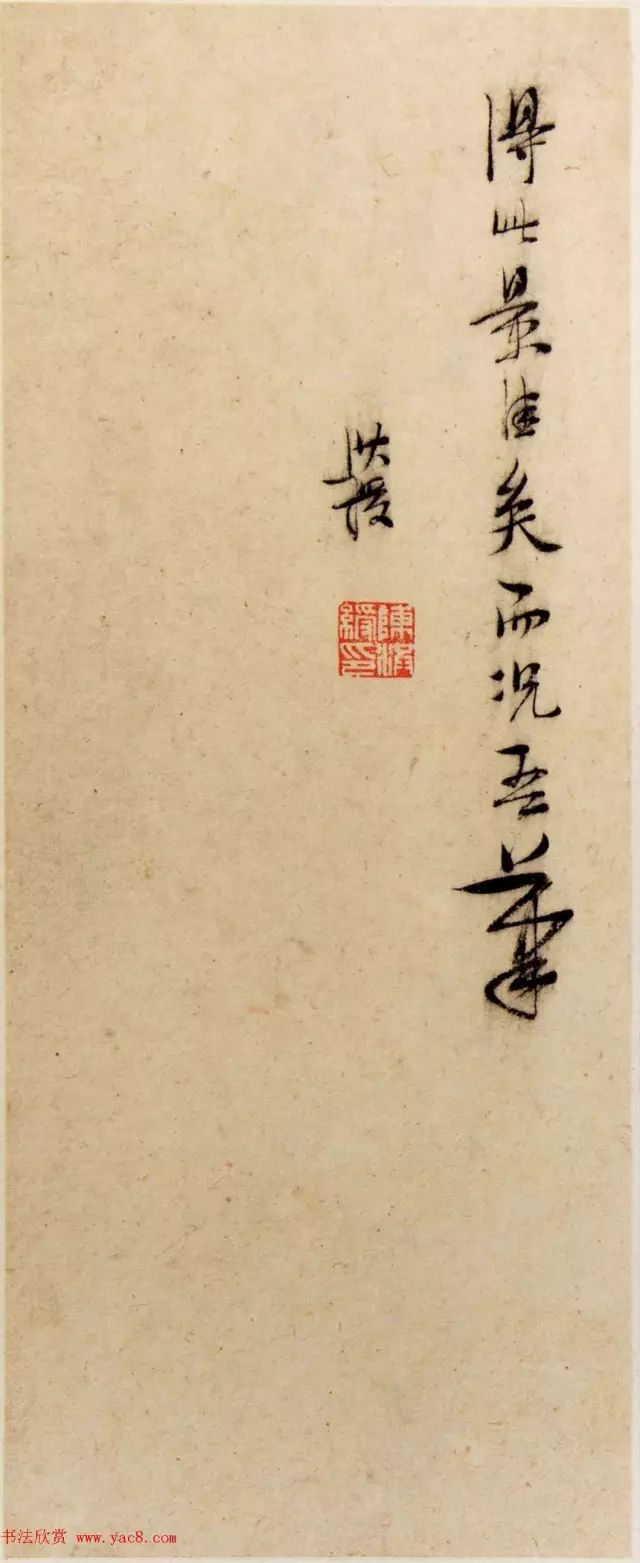 得此景佳矣而况吾輩
洪綬
陳洪綬印
书法欣赏 www.yac8.com